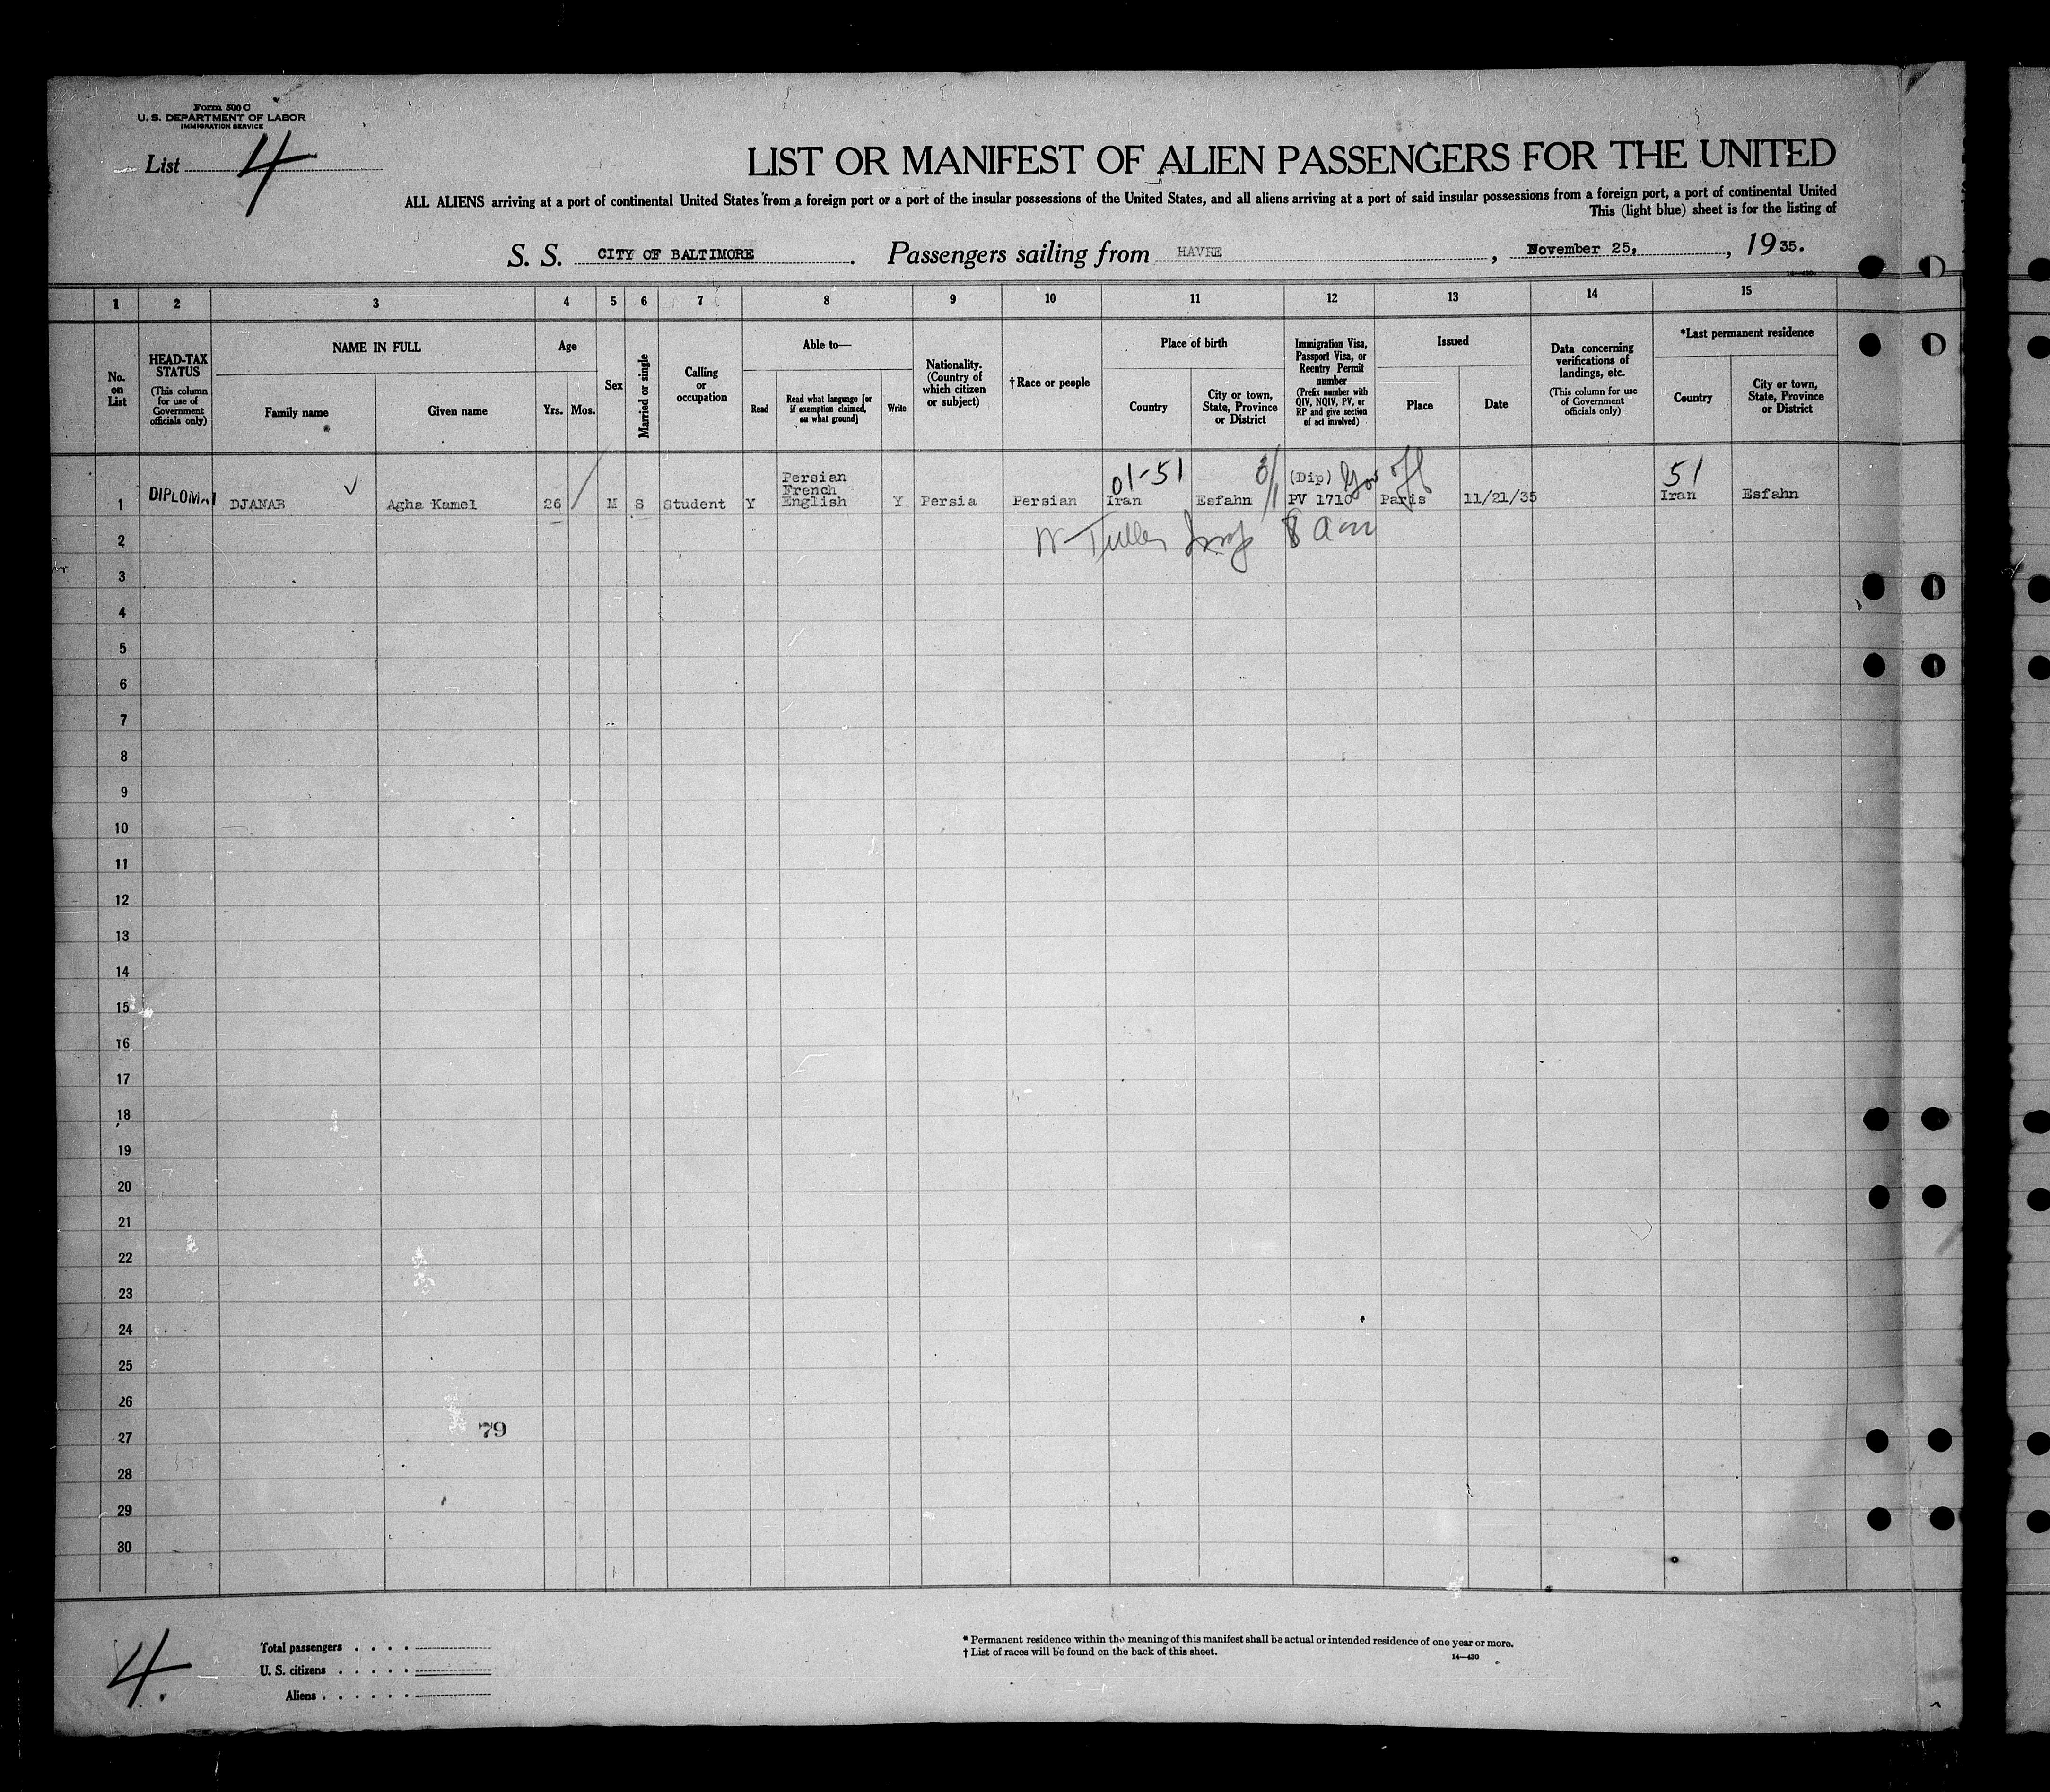 Form 500 C
U. S. DEPARTMENT OF LABOR
IMMIGRATION SERVICE
List 4
LIST OR MANIFEST OF ALIEN PASSENGERS FOR THE UNITED
ALL ALIENS arriving at a port of continental United States from a foreign port or a port of the insular possessions of the United States, and all aliens arriving at a port of said insular possessions from a foreign port, a port of continental United
This (light blue) sheet is for the listing of
S. S. CITY OF BALTIMORE. Passengers sailing from HAVRE, November 25, , 19 35.
1 2 3 4 5 6 7 8 9 10 11 12 13 14 15
No. on List
HEAD-TAX STATUS
(This column for use of Government officials only)
NAME IN FULL
Family name
Given name
Age
Yrs. Mos.
Sex
Married or single
Calling or occupation
Able to—
Read
Read what language [or if exemption claimed, on what ground]
Write
Nationality. (Country of which citizen or subject)
†Race or people
Place of birth
Country
City or town, State, Province or District
Immigration Visa, Passport Visa, or Reentry Permit number
(Prefix number with QIV, NQIV, PV, or RP and give section of act involved)
Issued
Place
Date
Data concerning verifications of landings, etc.
(This column for use of Government officials only)
*Last permanent residence
Country
City or town, State, Province or District
01-51 (Dip) Gov off 51
1 DIPLOMA DJANAB Agha Kamel 26 M S Student Y Persian French English Y Persia Persian Iran Esfahn PV 1710 Paris 11/21/35 Iran Esfahn
2
3
4
5
6
7
8
9
10
11
12
13
14
15
16
17
18
19
20
21
22
23
24
25
26
79
27
28
29
30
4.
Total passengers . . . .
U. S. citizens . . . . .
Aliens . . . . . .
* Permanent residence within the meaning of this manifest shall be actual or intended residence of one year or more.
† List of races will be found on the back of this sheet.
14—430